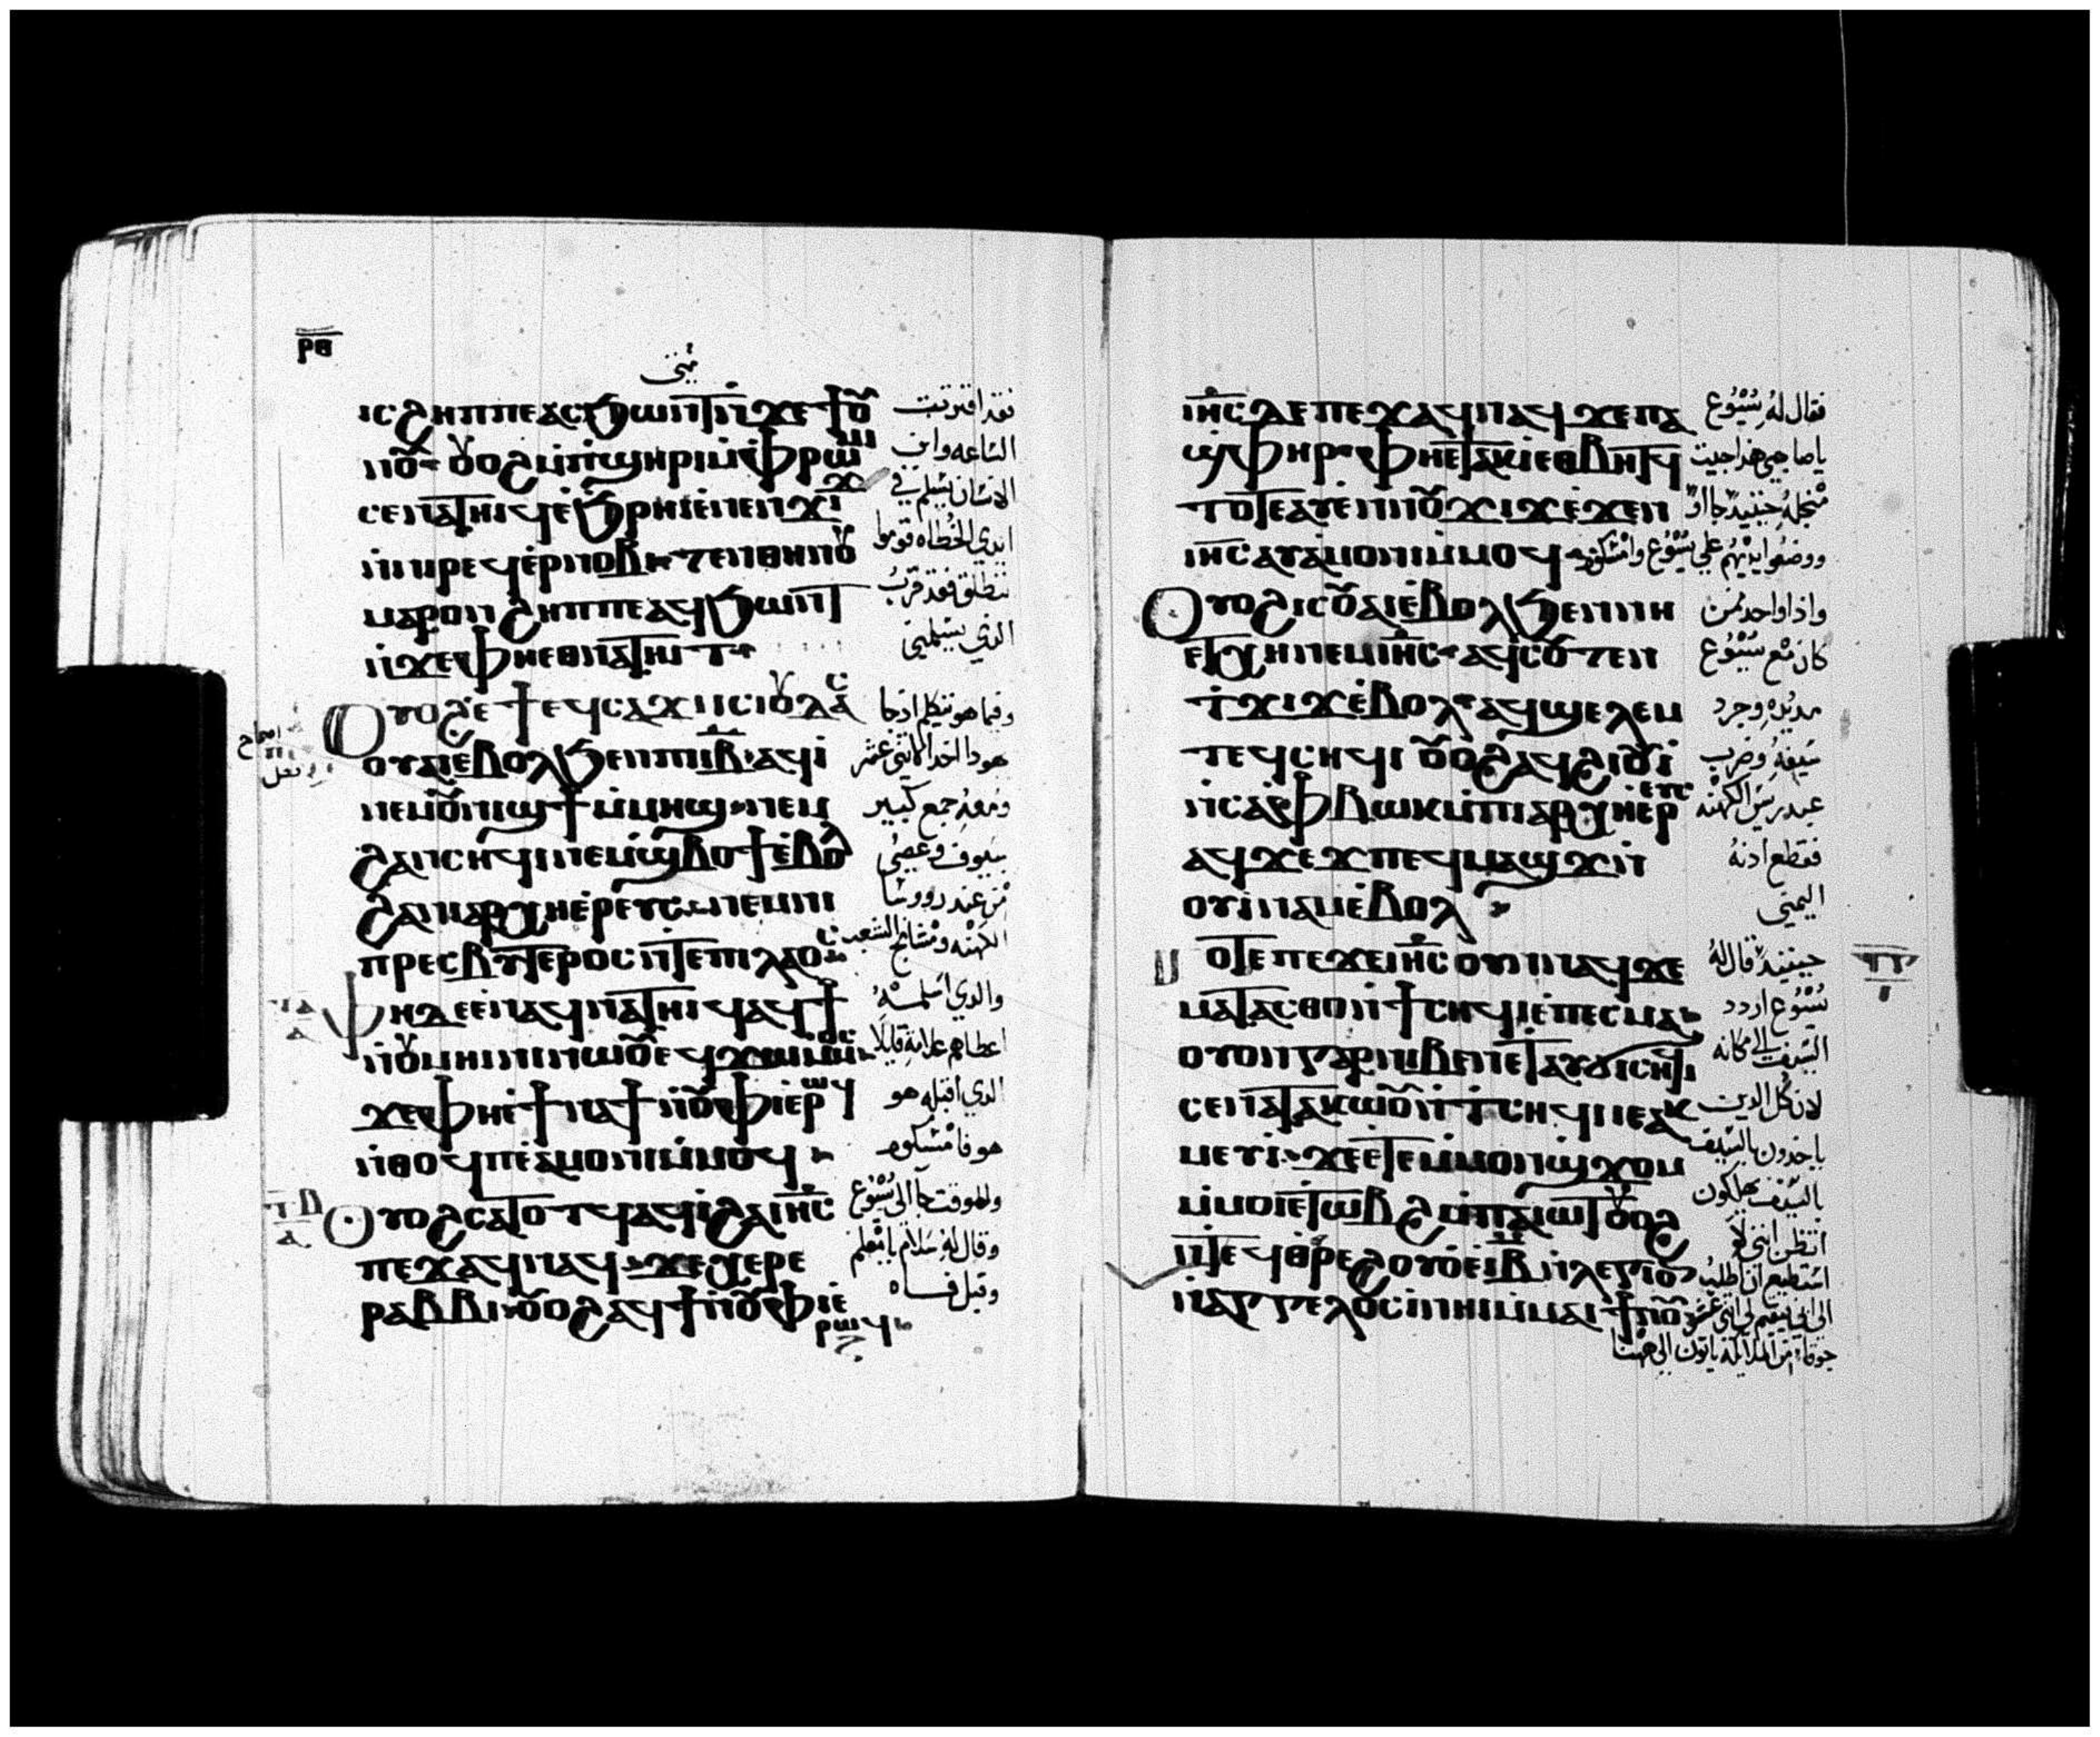 ⲣⲑ
ⲓⲥϩⲏⲡⲡⲉⲁⲥϧⲱⲛⲧⲛ̇ϫⲉϯⲟ̅ⲩ
ⲛⲟ̅ⲩ ⲟⲩⲟϩⲙ̇ⲡϣⲏⲣⲓⲙ̇ⲫⲣⲱⲙⲓ
ⲥⲉⲛⲁⲧⲏⲓϥⲉ̇ϧⲣⲏⲓⲉ̇ⲛⲉⲛϫⲓϫ
ⲛ̇ⲛⲓⲣⲉϥⲉ̇ⲣⲛⲟⲃⲓ ⲧⲉⲛⲑⲏⲛⲟⲩ
ⲙⲁⲣⲟⲛ ϩⲏⲡⲡⲉⲁϥϧⲱⲛⲧ
ⲛ̇ϫⲉⲫⲏⲉⲑⲛⲁⲧⲏⲓⲧ
ⲟⲩⲟϩⲉ̇ⲧⲉϥⲥⲁϫⲓⲛⲥⲓⲟⲩⲇⲁⲥ
ⲟⲩⲁⲓⲉ̇ⲃⲟⲗϧⲉⲛⲡⲓⲓ̅ⲃ̅ ⲁϥⲓ̇
ⲛⲉⲙⲟⲩⲛⲓϣϯⲙ̇ⲙⲏϣ ⲛⲉⲙ
ϩⲁⲛⲥⲏϥⲓⲛⲉⲙϣⲃⲟϯⲉ̇ⲃⲟⲗ
ϩⲁⲛⲓⲁⲣⲭⲏⲉ̇ⲣⲉⲩⲥ ⲛⲉⲙⲛⲓ
ⲡⲣⲉⲥⲃⲩⲧⲉⲣⲟⲥⲛ̇ⲧⲉⲡⲓⲗⲁⲟⲥ
ⲫⲏⲇⲉⲉ̇ⲛⲁϥⲛⲁⲧⲏⲓϥⲁϥϯ
ⲛⲱⲟⲩⲙⲏⲓⲛⲓ
ϫⲉⲫⲏⲉ̇ϯⲛⲁϯⲛ̇ⲟⲩⲫⲓⲉ̇ⲣⲱϥ
ⲛ̇ⲑⲟϥⲡⲉⲁ̇ⲙⲟⲛⲓⲙ̇ⲙⲟϥ
ⲟⲩⲟϩⲥⲁⲧⲟⲧϥⲁϥⲓ̇ϩⲁⲓⲏ̅ⲥ̅
ⲡⲉϫⲁϥⲛⲁϥ ϫⲉⲭⲉⲣⲉ
ⲣⲁⲃⲃⲓ ⲟⲩⲟϩⲁϥϯⲛ̇ⲟⲩⲫⲓⲉ̇
ⲣⲱϥ
فقد اقتربت
الساعه وابن
الانسان يسلم في
ايدي الخطاه قوموا
ننطلق فقد قرب
الذي يسلمني
وفيما هو يتكلم اذ جا
يهودا احد الاثني عشر
ومعه جمع كبير
بسيوف وعصي
من عند رووسا
الكهنه ومشايخ الشعب
والدي اسلمه
اعطاهم علامة قايلا
الدي اقبله هو
هو فامسكوه
وللوقت جا الي يسوع
وقال له سلام يا معلم
وقبل فاه
ⲓⲏ̅ⲥ̅ⲇⲉⲡⲉϫⲁϥⲛⲁϥϫⲉⲡⲁ
ϣ̇ⲫⲏⲣ ⲫⲏⲉⲧⲁⲕⲓ̇ⲉⲑⲃⲏⲧϥ
ⲧⲟⲧⲉⲁⲩⲉⲛⲛⲟⲩϫⲓϫⲉ̇ϫⲉⲛ
ⲓⲏ̅ⲥ̅ⲁⲩⲁ̇ⲙⲟⲛⲓⲙ̇ⲙⲟϥ
ⲟⲩⲟϩⲓⲥⲟⲩⲁⲓⲉ̇ⲃⲟⲗϧⲉⲛⲛⲏ
ⲉⲧⲭⲏⲛⲉⲙⲓⲏ̅ⲥ̅ ⲁϥⲥⲟⲩⲧⲉⲛ
ⲧ̇ϫⲓϫⲉ̇ⲃⲟⲗ ⲁϥϣⲉⲗⲉⲙ
ⲧⲉϥⲥⲏϥⲓ ⲟⲩⲟϩⲁϥϩⲓⲟⲩⲓ̇
ⲛ̇ⲥⲁⲫⲃⲱⲕⲙ̇ⲡⲓⲁⲣⲭⲏⲉⲣⲉⲩⲥ
ⲁϥϫⲉϫⲡⲉϥⲙⲁϣϫ
ⲟⲩⲓ̇ⲛⲁⲙⲉ̇ⲃⲟⲗ
ⲧⲟⲧⲉⲡⲉϫⲉⲓⲏ̅ⲥ̅ⲟⲩⲛⲛⲁϥϫⲉ
ⲙⲁⲧⲁⲥⲑⲟⲛ̇ϯⲥⲏϥⲓⲉ̇ⲡⲉⲥⲙⲁ
ⲟⲩⲟⲛⲅⲁⲣⲛⲓⲃⲉⲛⲉⲧⲁⲩϭⲓⲥⲏϥⲓ
ⲥⲉⲛⲁⲧⲁⲕⲱⲟⲩⲛ̇ⲧ̇ⲥⲏϥⲓⲓⲉⲁⲕ
ⲙⲉⲩⲓ̇ ϫⲉⲉⲧⲉⲙ̇ⲙⲟⲛϣϫⲟⲙ
ⲙ̇ⲙⲟⲓⲉ̇ⲧⲱⲃϩⲙ̇ⲡⲁⲓⲱⲧⲟⲩⲟϩ
ⲛ̇ⲧⲉϥⲑⲣⲉϩⲟⲩⲟⲉ̇ⲓ̅ⲃ̅ⲛ̇ⲗⲉⲅⲓⲱⲛ
ⲛ̇ⲁⲅⲅⲉⲗⲟⲥⲓ̇ⲛⲏⲓⲙ̇ⲙⲁⲓϯⲛⲟⲩ
فقال له يسوع
يا صاحبي هذا جيت
من اجله حينيد جااوا
ووضعوا ايديهم علي يسوع وامسكوه
واذا واحد ممن
كان مع يسوع
مد يده وجرد
سيفه وضرب
عبد ريس الكهنه
فقطع ادنه
اليمني
حينيد قال له
يسوع اردد
السيف الي مكانه
لان كل الدين
ياخدون بالسيف
بالسيف يهلكون
اتظن انني لا
استطيع ان اطلب
الي ابي فيقيم لي اثني عشر
جوقة من الملايكه ياتون الي ههنا